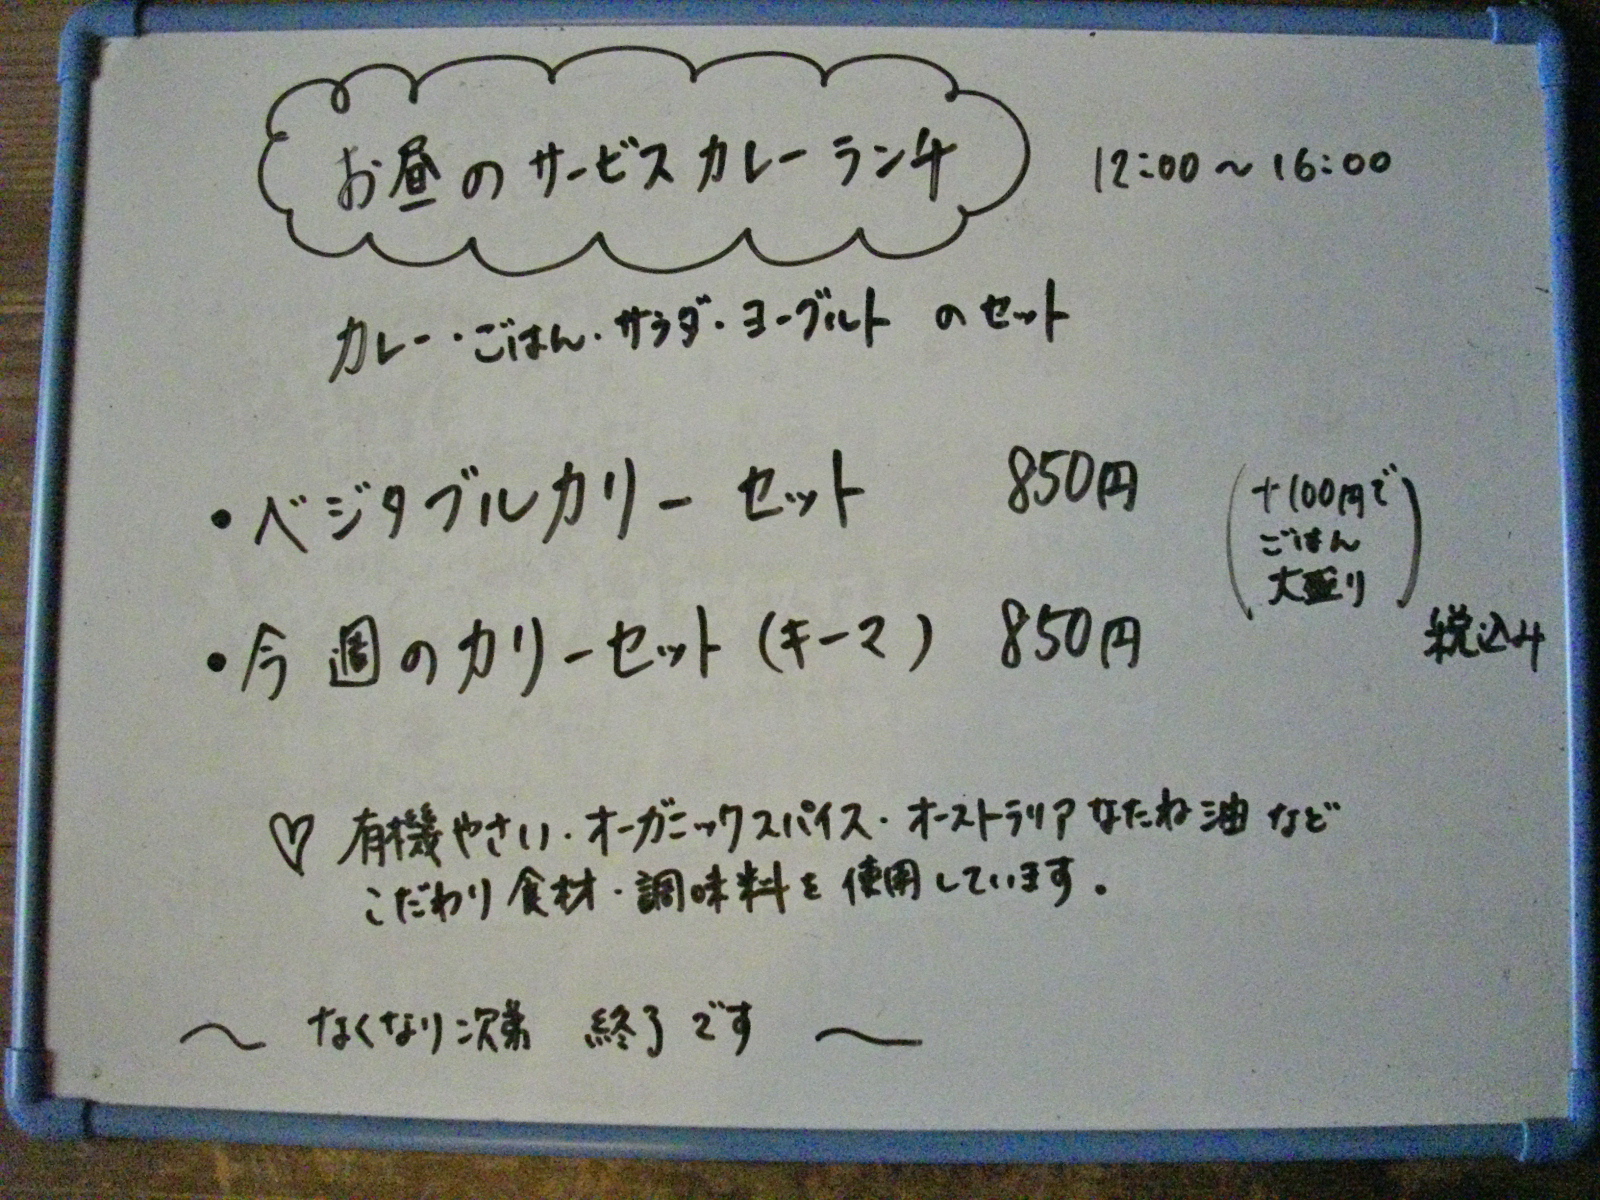 お昼のサービスカレーランチ 12:00〜16:00
カレー・ごはん・サラダ・ヨーグルト のセット
・ベジタブルカリーセット 850円
(+100円で
ごはん
大盛り)
・今週のカリーセット(キーマ) 850円
税込み
♡ 有機やさい・オーガニックスパイス・オーストラリアなたね油など
こだわり食材・調味料を使用しています。
〜 なくなり次第 終了です 〜